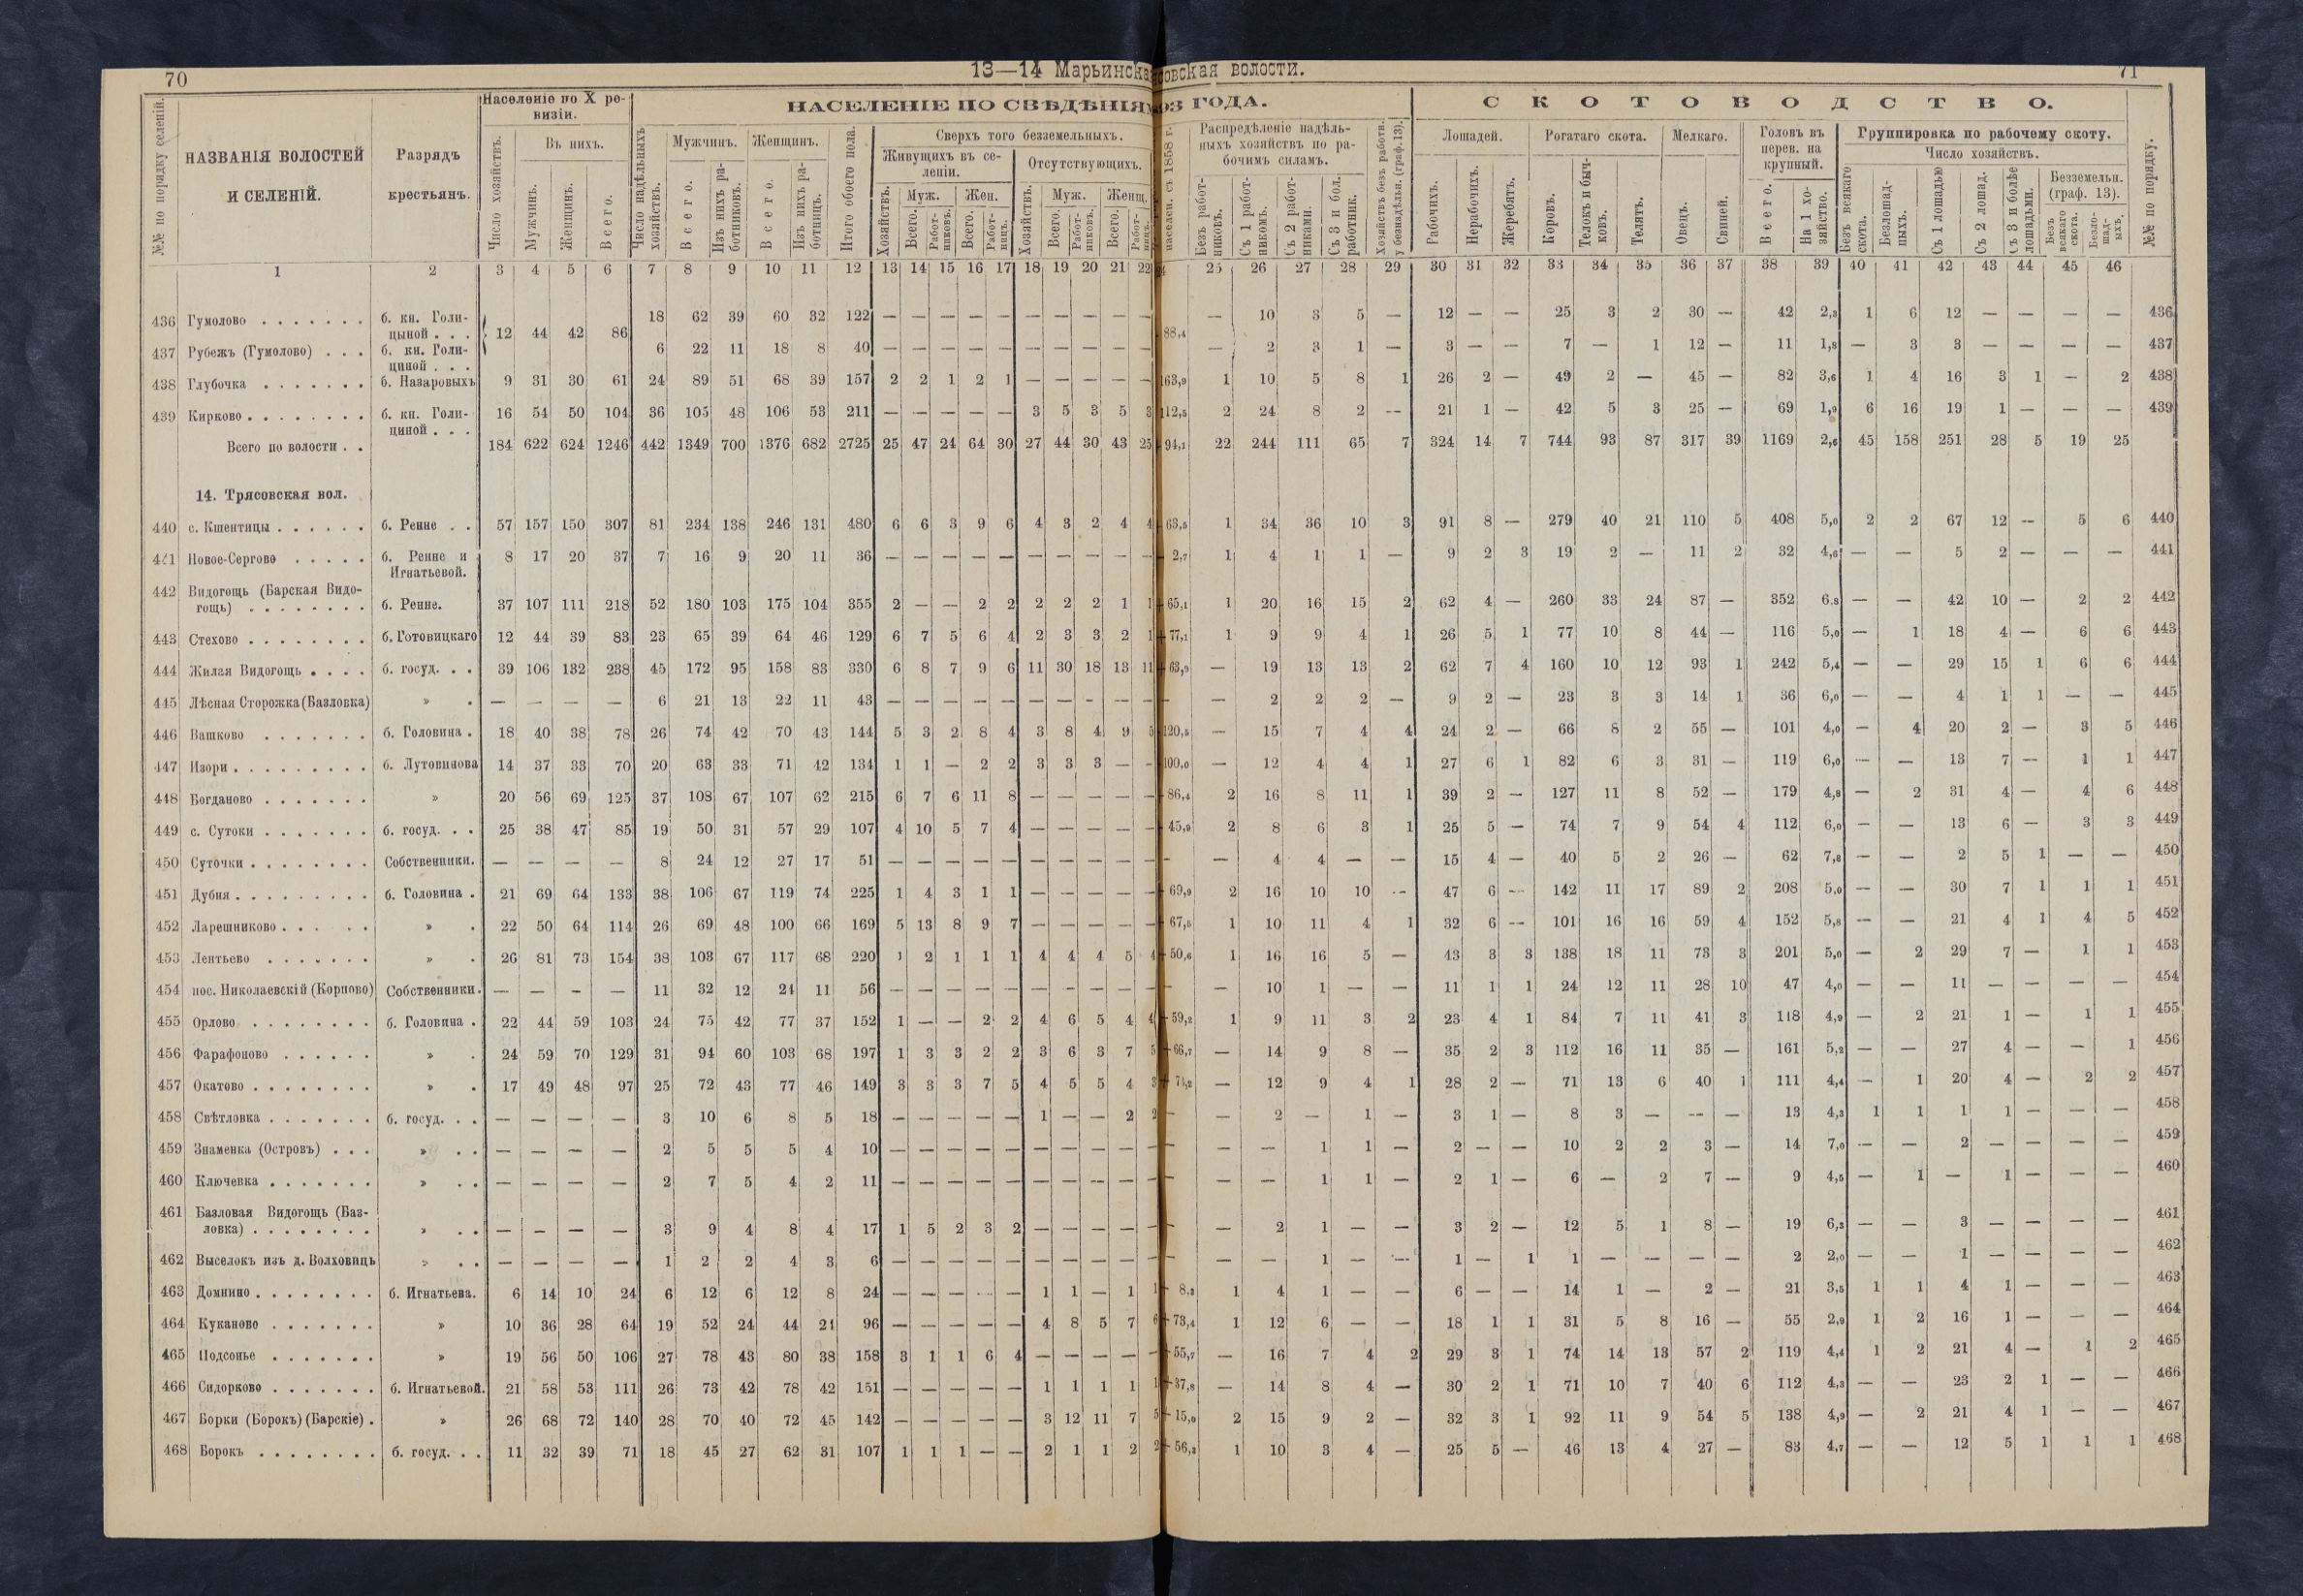 70
13—14 Марьинска
совская волости.
71
№№ по порядку селеній.
НАЗВАНІЯ ВОЛОСТЕЙ
И СЕЛЕНІЙ.
Разрядъ
крестьянъ.
Населеніе по X ре-
визіи.
Число хозяйствъ.
Въ нихъ.
Мужчинъ.
Женщинъ.
Всего.
НАСЕЛЕНІЕ ПО СВѢДѢНІЯМ
ГОДА.
Число надѣльныхъ хозяйствъ.
Мужчинъ.
Всего.
Изъ нихъ работниковъ.
Женщинъ.
Всего.
Изъ нихъ работницъ.
Итого обоего пола.
Сверхъ того безземельныхъ.
Живущихъ въ се-
леніи.
Хозяйствъ.
Муж.
Всего.
Работниковъ.
Жен.
Всего.
Работницъ.
Отсутствующихъ.
Хозяйствъ.
Муж.
Всего.
Работниковъ.
Женщ.
Всего.
населен. съ 1858 г.
Распредѣленіе надѣль-
ныхъ хозяйствъ по ра-
бочимъ силамъ.
Безъ работниковъ.
Съ 1 работникомъ.
Съ 2 работниками.
Съ 3 и бол. работник.
Хозяйствъ безъ работн. у безнадѣльн. (граф. 13).
СКОТОВОДСТВО.
Лошадей.
Рабочихъ.
Нерабочихъ.
Жеребятъ.
Рогатаго скота.
Коровъ.
Телокъ и бычковъ.
Телятъ.
Мелкаго.
Овецъ.
Свиней.
Головъ въ
перев. на
крупный.
Всего.
На 1 хозяйство.
Группировка по рабочему скоту.
Число хозяйствъ.
Безъ всякаго скота.
Безлошадныхъ.
Съ 1 лошадью
Съ 2 лошад.
Съ 3 и болѣе лошадьми.
Безземельн.
(граф. 13).
Безъ всякаго скота.
Безлошадныхъ.
№№ по порядку.
1 2 3 4 5 6 7 8 9 10 11 12 13 14 15 16 17 18 19 20 21 22 25 26 27 28 29 30 31 32 33 34 35 36 37 38 39 40 41 42 43 44 45 46
436 Гумолово . . . . . . . б. кн. Голи-
цыной . . . 12 44 42 86 18 62 39 60 32 122 — — — — — — — — — — 88,4 — 10 3 5 — 12 — — 25 3 2 30 — 42 2,3 1 6 12 — — — — 436
437 Рубежъ (Гумолово) . . . б. кн. Голи-
циной . . . 6 22 11 18 8 40 — — — — — — — — — — — 2 3 1 — 3 — — 7 — 1 12 — 11 1,8 — 3 3 — — — — 437
438 Глубочка . . . . . . . б. Назаровыхъ 9 31 30 61 24 89 51 68 39 157 2 2 1 2 1 — — — — — 163,9 1 10 5 8 1 26 2 — 49 2 — 45 — 82 3,6 1 4 16 3 1 — 2 438
439 Кирково . . . . . . . . б. кн. Голи-
циной . . . 16 54 50 104 36 105 48 106 53 211 — — — — — 3 5 3 5 3 112,5 2 24 8 2 — 21 1 — 42 5 3 25 — 69 1,9 6 16 19 1 — — — 439
Всего по волости . . 184 622 624 1246 442 1349 700 1376 682 2725 25 47 24 64 30 27 44 30 43 25 94,1 22 244 111 65 7 324 14 7 744 93 87 317 39 1169 2,6 45 158 251 28 5 19 25
14. Трясовская вол.
440 с. Кшентицы . . . . . . б. Ренне . . 57 157 150 307 81 234 138 246 131 480 6 6 3 9 6 4 3 2 4 4 63,5 1 34 36 10 3 91 8 — 279 40 21 110 5 408 5,0 2 2 67 12 — 5 6 440
441 Новое-Сергово . . . . . б. Ренне и
Игнатьевой. 8 17 20 37 7 16 9 20 11 36 — — — — — — — — — — — 2,7 1 4 1 1 — 9 2 3 19 2 — 11 2 32 4,6 — — 5 2 — — — 441
442 Видогощь (Барская Видо-
гощь) . . . . . . . . б. Ренне. 37 107 111 218 52 180 103 175 104 355 2 — — 2 2 2 2 2 1 1 + 65,1 1 20 16 15 2 62 4 — 260 33 24 87 — 352 6.8 — — 42 10 — 2 2 442
443 Стехово . . . . . . . . б. Готовицкаго 12 44 39 83 23 65 39 64 46 129 6 7 5 6 4 2 3 3 2 1 + 77,1 1 9 9 4 1 26 5 1 77 10 8 44 — 116 5,0 — 1 18 4 — 6 6 443
444 Жилая Видогощь . . . . б. госуд. . . 39 106 132 238 45 172 95 158 83 330 6 8 7 9 6 11 30 18 13 11 + 63,9 — 19 13 13 2 62 7 4 160 10 12 93 1 242 5,4 — — 29 15 1 6 6 444
445 Лѣсная Сторожка (Базловка) » . — — — — 6 21 13 22 11 43 — — — — — — — — — — — — 2 2 2 — 9 2 — 23 3 3 14 1 36 6,0 — — 4 1 1 — — 445
446 Вашково . . . . . . . б. Головина . 18 40 38 78 26 74 42 70 43 144 5 3 2 8 4 3 8 4 9 5 120,5 — 15 7 4 4 24 2 — 66 8 2 55 — 101 4,0 — 4 20 2 — 3 5 446
447 Изори . . . . . . . . . б. Лутовинова 14 37 33 70 20 63 33 71 42 134 1 1 — 2 2 3 3 3 — — 100,0 — 12 4 4 1 27 6 1 82 6 3 31 — 119 6,0 — — 13 7 — 1 1 447
448 Богданово . . . . . . . » 20 56 69 125 37 108 67 107 62 215 6 7 6 11 8 — — — — — + 86,4 2 16 8 11 1 39 2 — 127 11 8 52 — 179 4,8 — 2 31 4 — 4 6 448
449 с. Сутоки . . . . . . . б. госуд. . . 25 38 47 85 19 50 31 57 29 107 4 10 5 7 4 — — — — — + 45,9 2 8 6 3 1 25 5 — 74 7 9 54 4 112 6,0 — — 13 6 — 3 3 449
450 Суточки . . . . . . . . Собственники. — — — — 8 24 12 27 17 51 — — — — — — — — — — — — 4 4 — — 15 4 — 40 5 2 26 — 62 7,8 — — 2 5 1 — — 450
451 Дубня . . . . . . . . . б. Головина . 21 69 64 133 38 106 67 119 74 225 1 4 3 1 1 — — — — — + 69,9 2 16 10 10 — 47 6 — 142 11 17 89 2 208 5,0 — — 30 7 1 1 1 451
452 Ларешниково . . . . . » . 22 50 64 114 26 69 48 100 66 169 5 13 8 9 7 — — — — — + 67,5 1 10 11 4 1 32 6 — 101 16 16 59 4 152 5,8 — — 21 4 1 4 5 452
453 Лентьево . . . . . . . » . 26 81 73 154 38 103 67 117 68 220 1 2 1 1 1 4 4 4 5 4 + 50,6 1 16 16 5 — 43 3 3 138 18 11 73 3 201 5,0 — 2 29 7 — 1 1 453
454 пос. Николаевскій (Корпово) Собственники. — — — — 11 32 12 24 11 56 — — — — — — — — — — — — 10 1 — — 11 1 1 24 12 11 28 10 47 4,0 — — 11 — — — — 454
455 Орлово . . . . . . . . б. Головина . 22 44 59 103 24 75 42 77 37 152 1 — — 2 2 4 6 5 4 4 + 59,2 1 9 11 3 2 23 4 1 84 7 11 41 3 118 4,9 — 2 21 1 — 1 1 455
456 Фарафоново . . . . . . » . 24 59 70 129 31 94 60 103 68 197 1 3 3 2 2 3 6 3 7 5 + 66,7 — 14 9 8 — 35 2 3 112 16 11 35 — 161 5,2 — — 27 4 — — 1 456
457 Окатово . . . . . . . . » . 17 49 48 97 25 72 43 77 46 149 3 3 3 7 5 4 5 5 4 3 + 74,2 — 12 9 4 1 28 2 — 71 13 6 40 1 111 4,4 — 1 20 4 — 2 2 457
458 Свѣтловка . . . . . . . б. госуд. . . — — — — 3 10 6 8 5 18 — — — — — 1 — — 2 2 — — 2 — 1 — 3 1 — 8 3 — — — 13 4,3 1 1 1 1 — — — 458
459 Знаменка (Островъ) . . . » . . — — — — 2 5 5 5 4 10 — — — — — — — — — — — — — 1 1 — 2 — — 10 2 2 3 — 14 7,0 — — 2 — — — — 459
460 Ключевка . . . . . . . » . . — — — — 2 7 5 4 2 11 — — — — — — — — — — — — — 1 1 — 2 1 — 6 — 2 7 — 9 4,5 — 1 — 1 — — — 460
461 Базловая Видогощь (Баз-
ловка) . . . . . . . . » . . — — — — 3 9 4 8 4 17 1 5 2 3 2 — — — — — — — 2 1 — — 3 2 — 12 5 1 8 — 19 6,3 — — 3 — — — — 461
462 Выселокъ изъ д. Волховицъ » . . — — — — 1 2 2 4 3 6 — — — — — — — — — — — — — 1 — — 1 — 1 1 — — — — 2 2,0 — — 1 — — — — 462
463 Домнино . . . . . . . . б. Игнатьева. 6 14 10 24 6 12 6 12 8 24 — — — — — 1 1 — 1 1 + 8,3 1 4 1 — — 6 — — 14 1 — 2 — 21 3,5 1 1 4 1 — — — 463
464 Куканово . . . . . . . » 10 36 28 64 19 52 24 44 21 96 — — — — — 4 8 5 7 6 + 73,4 1 12 6 — — 18 1 1 31 5 8 16 — 55 2,9 1 2 16 1 — — — 464
465 Подсонье . . . . . . . » 19 56 50 106 27 78 43 80 38 158 3 1 1 6 4 — — — — — + 55,7 — 16 7 4 2 29 3 1 74 14 13 57 2 119 4,4 1 2 21 4 — 1 2 465
466 Сидорково . . . . . . . б. Игнатьевой. 21 58 53 111 26 73 42 78 42 151 — — — — — 1 1 1 1 1 + 37,8 — 14 8 4 — 30 2 1 71 10 7 40 6 112 4,3 — — 23 2 1 — — 466
467 Борки (Борокъ) (Барскіе) . » 26 68 72 140 28 70 40 72 45 142 — — — — — 3 12 11 7 5 + 15,0 2 15 9 2 — 32 3 1 92 11 9 54 5 138 4,9 — 2 21 4 1 — — 467
468 Борокъ . . . . . . . . б. госуд. . . 11 32 39 71 18 45 27 62 31 107 1 1 1 — — 2 1 1 2 2 + 56,3 1 10 3 4 — 25 5 — 46 13 4 27 — 83 4,7 — — 12 5 1 1 1 468